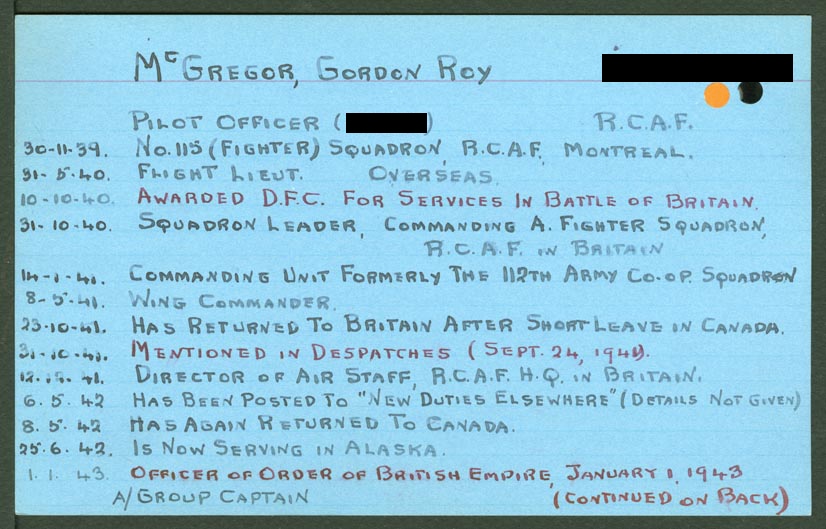 McGREGOR, GORDON ROY
PILOT OFFICER ( ) R.C.A.F.
30-11-39. NO. 115 (FIGHTER) SQUADRON, R.C.A.F. MONTREAL.
31-5-40. FLIGHT LIEUT. OVERSEAS.
10-10-40. AWARDED D.F.C. FOR SERVICES IN BATTLE OF BRITAIN.
31-10-40. SQUADRON LEADER, COMMANDING A. FIGHTER SQUADRON,
R.C.A.F. IN BRITAIN
14-1-41. COMMANDING UNIT FORMERLY THE 112TH ARMY CO-OP. SQUADRON
8-5-41. WING COMMANDER.
23-10-41. HAS RETURNED TO BRITAIN AFTER SHORT LEAVE IN CANADA.
31-10-41. MENTIONED IN DESPATCHES (SEPT. 24, 1941).
41. DIRECTOR OF AIR STAFF, R.C.A.F. H.Q. IN BRITAIN.
6.5.42 HAS BEEN POSTED TO "NEW DUTIES ELSEWHERE" (DETAILS NOT GIVEN)
8.5.42 HAS AGAIN RETURNED TO CANADA.
25.6.42. IS NOW SERVING IN ALASKA.
1.1.43. OFFICER OF ORDER OF BRITISH EMPIRE, JANUARY 1, 1943
A/GROUP CAPTAIN (CONTINUED ON BACK)